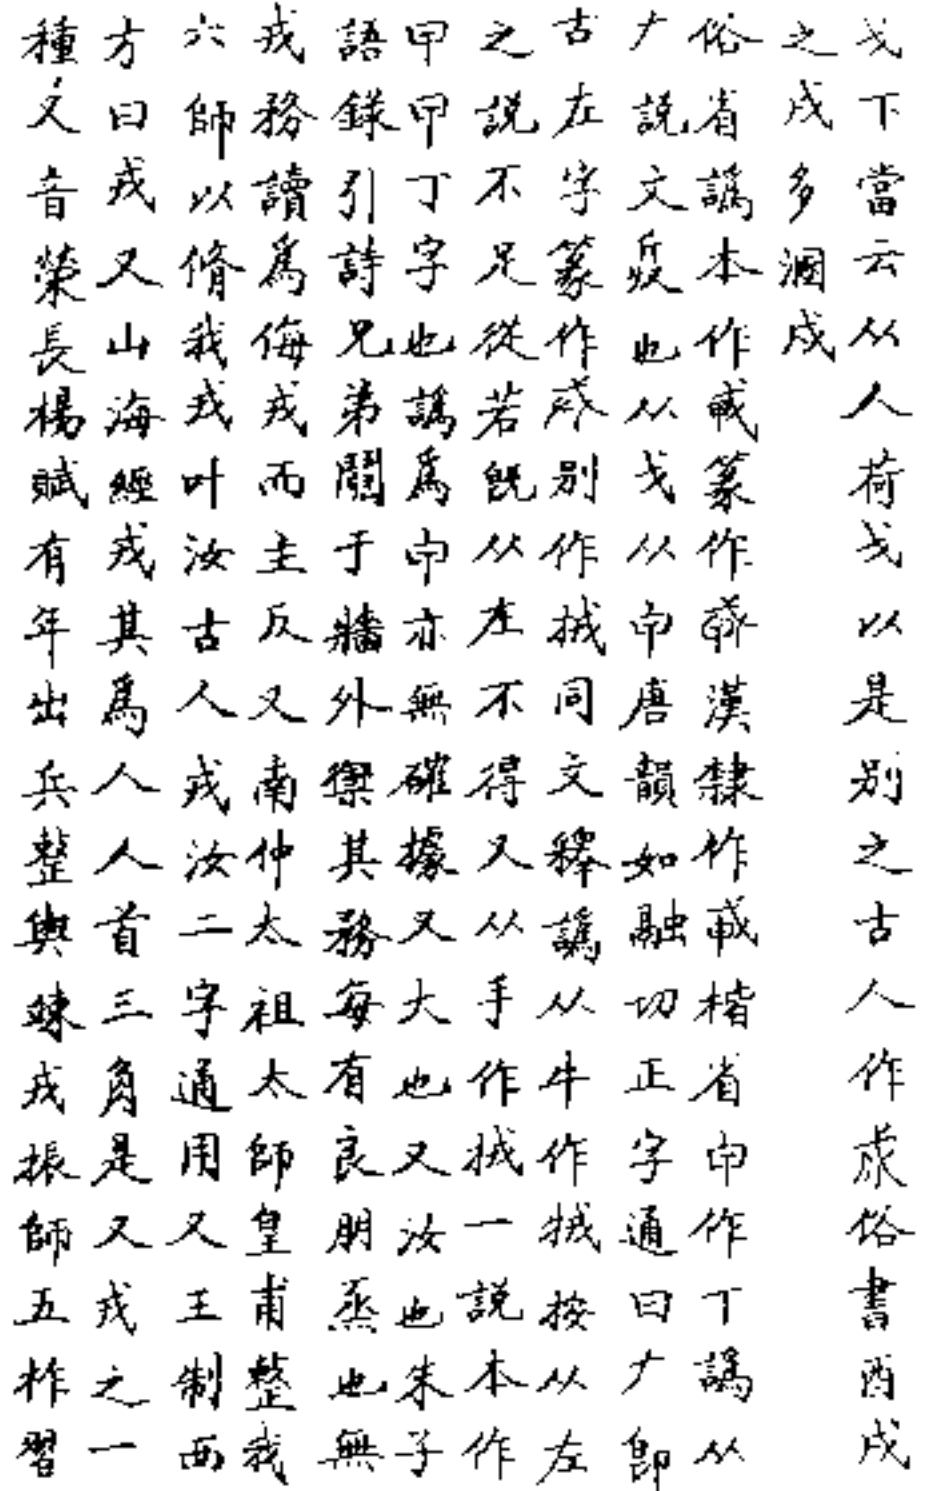 戈下當云从人荷戈以是别之古人作𢦦俗書酉戌
之戌多溷戍
俗省譌本作𢦦篆作𢧢漢隸作𢦦楷省甲作丁譌从
𠂇說文兵也从戈从甲唐韻如融切正字通曰𠂇卽
古左字篆作𢦦别作拭同文釋譌从牛作拭按从左
之說不足從若旣从左不得又从手作拭一說本作
甲甲丁字也譌爲甲亦無確據又大也又汝也朱子
語錄引詩兄弟鬩于牆外禦其務每有良朋烝也無
戎務讀爲侮戎而主反又南仲太祖太師皇甫整我
六師以脩我戎叶汝古人戎汝二字通用又王制西
方曰戎又山海經戎其爲人人首三角是又戎之一
種又音榮長楊賦有年出兵整輿竦戎振師五柞習